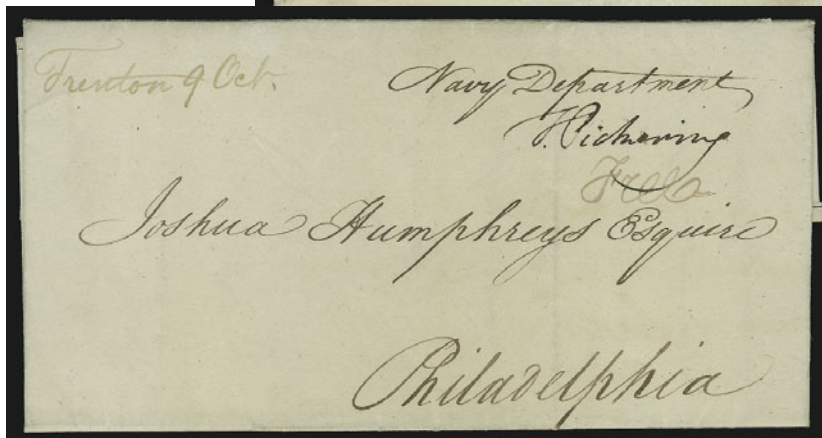 Trenton 9 Oct.
Navy Department
T. Pickering
Free
Joshua Humphreys Esquire
Philadelphia